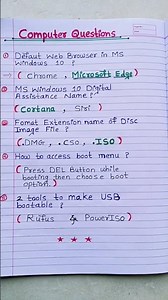 Computer Questions
① Default Web Browser in MS
Windows 10 ?
( Chrome , Microsoft Edge)
② MS Windows 10 Digital
Assistance Name ?
(Cortana , Siri )
③ Fomat Extension name of Disc
Image File ?
( .DMG , .CSO , .ISO)
④ How to access boot menu ?
( Press DEL Button while
booting then choose boot
option. )
⑤ 2 tools to make USB
bootable ?
( Rufus & PowerISO )